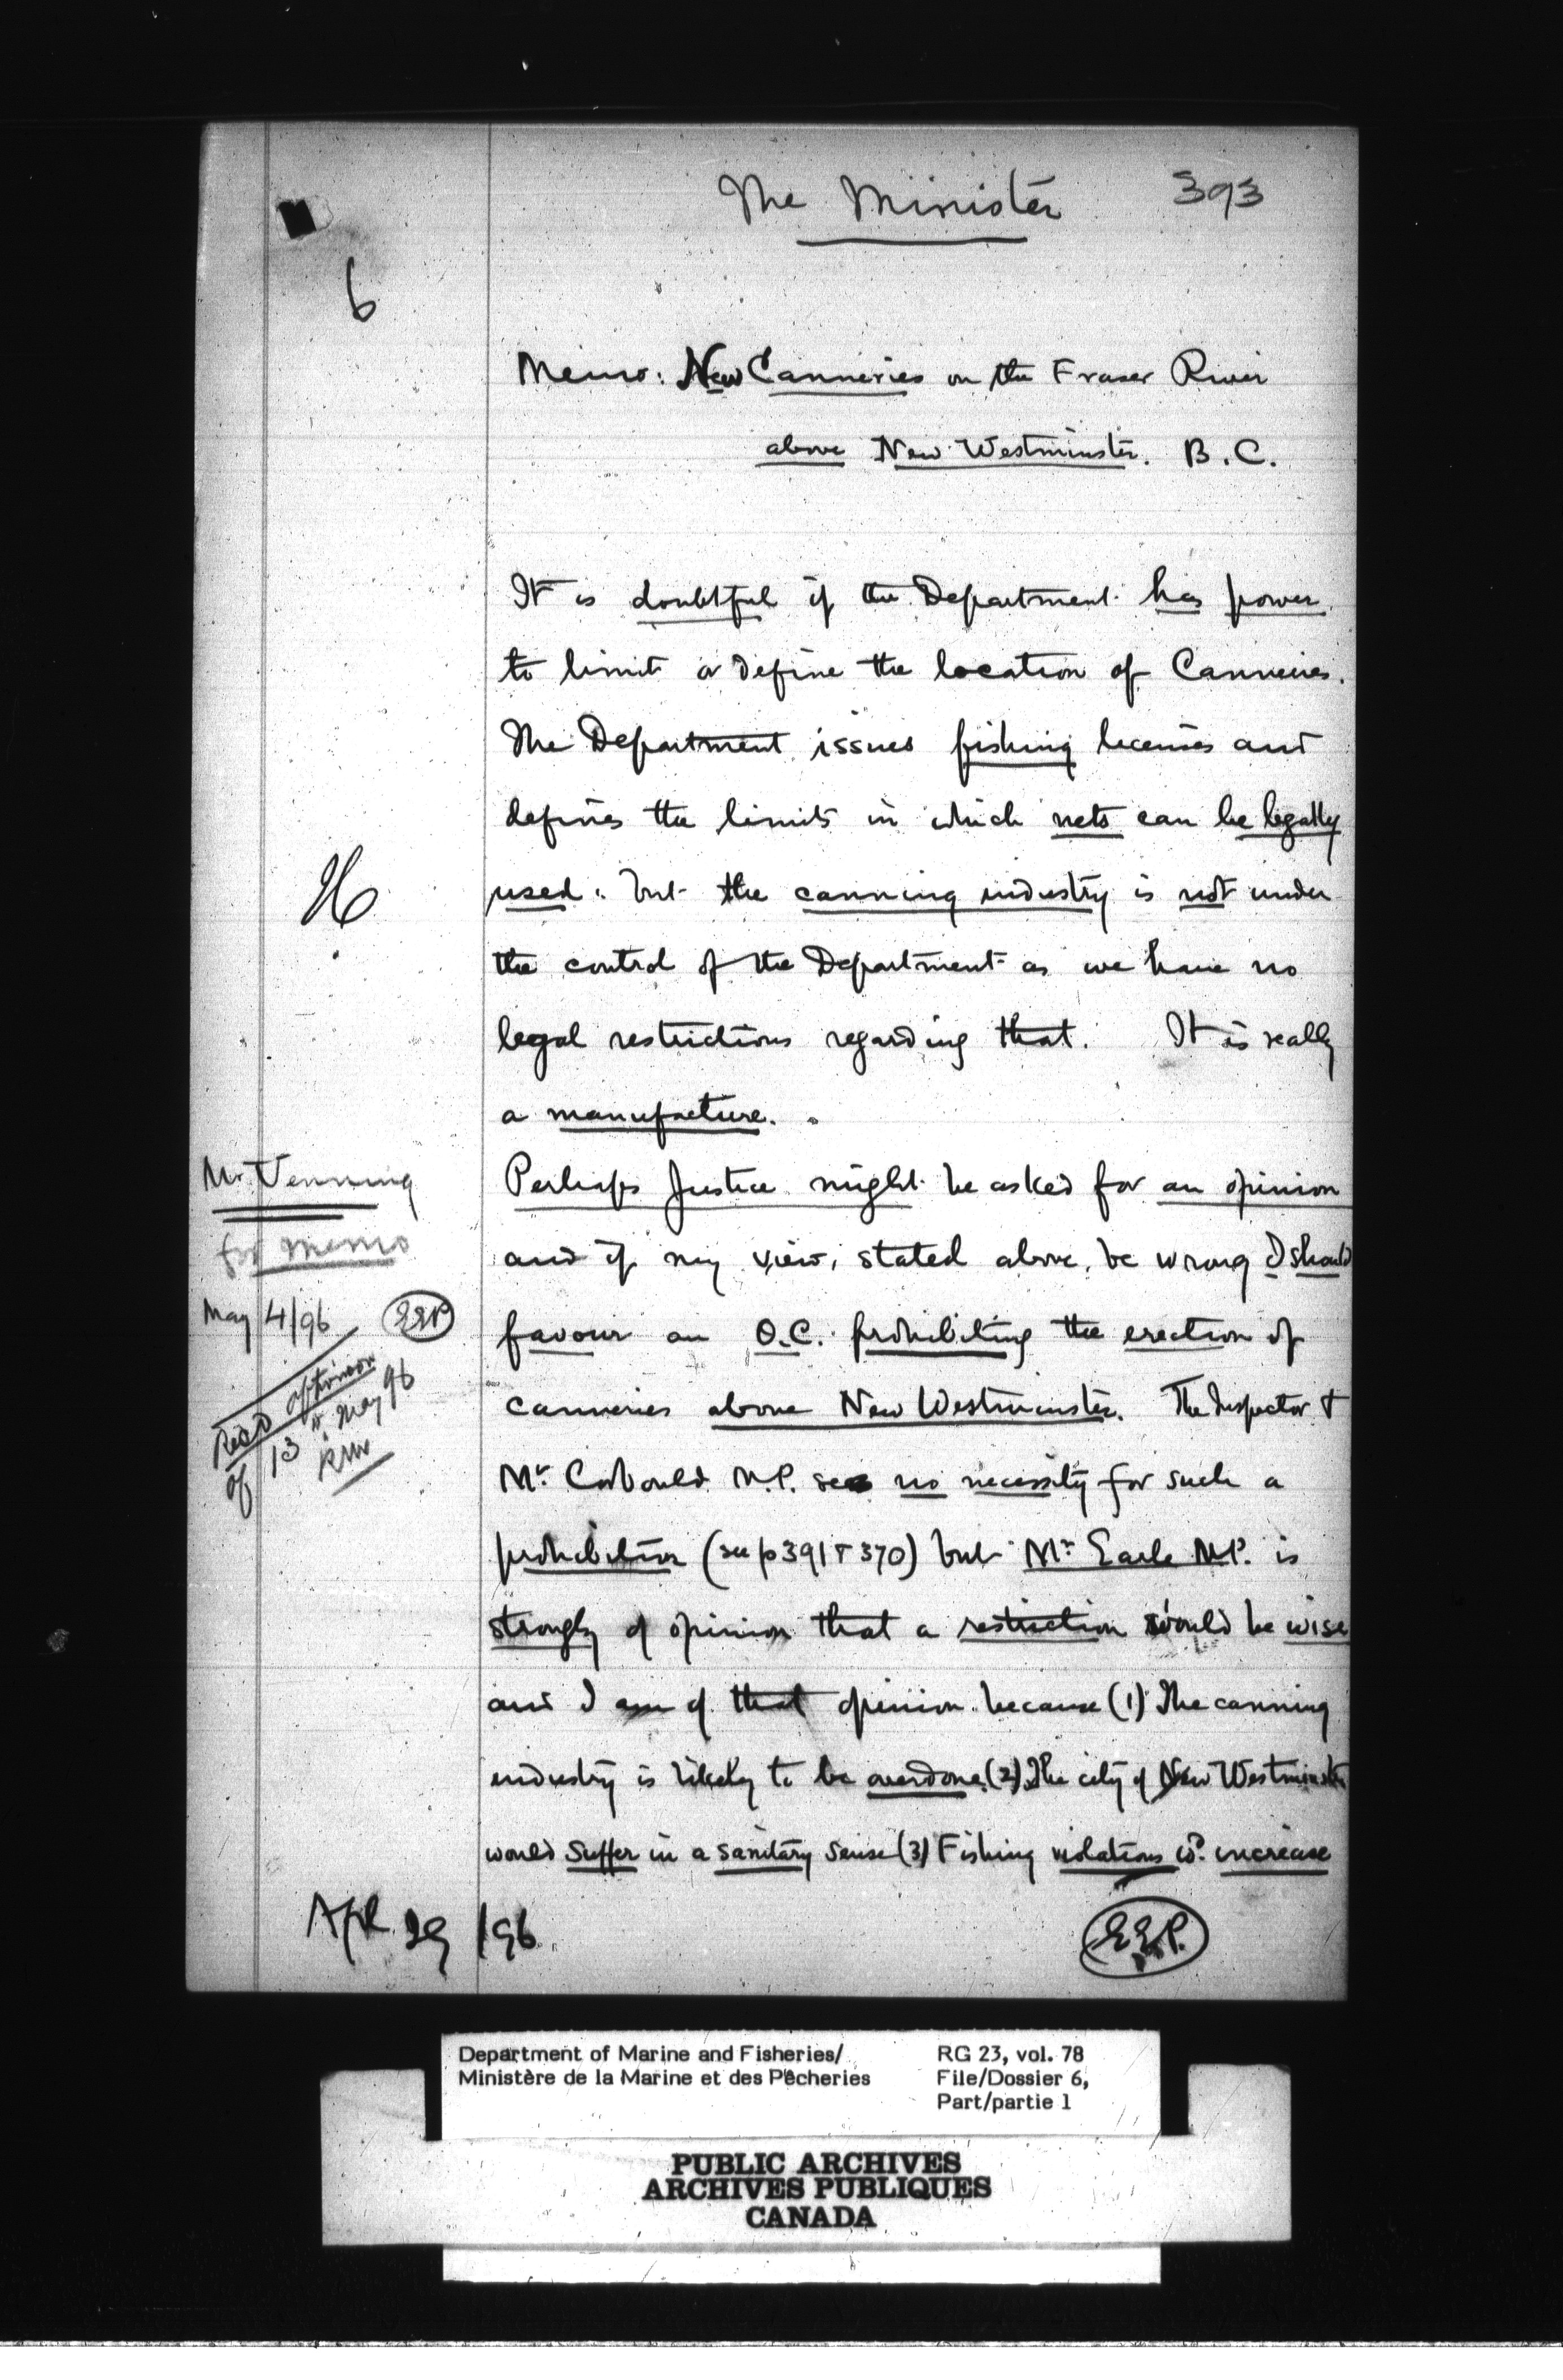 The Minister 393
6
Memo: New Canneries on the Fraser River
above New Westminster. B.C.
It is doubtful if the Department has power
to limit or define the location of Canneries.
The Department issues fishing licenses and
defines the limits in which nets can be legally
used: but the canning industry is not under
the control of the Department as we have no
legal restrictions regarding that. It is really
a manufacture.
Perhaps Justice might be asked for an opinion
and if my view, stated above, be wrong I should
favour an O.C. prohibiting the erection of
canneries above New Westminster. The Inspector &
Mr Corbould M.P. see no necessity for such a
prohibition (see p 391 & 370) but Mr Earle M.P. is
strongly of opinion that a restriction would be wise
and I am of that opinion because (1) The canning
industry is likely to be overdone (2) The city of New Westminster
would suffer in a sanitary sense (3) Fishing violations wd. increase
Apl 29/96
E.E.P.
Mr. Venning
for memo
May 4/96 EEP
Rec'd afternoon
of 13th May 96
RNV
Department of Marine and Fisheries/
Ministère de la Marine et des Pêcheries
RG 23, vol. 78
File/Dossier 6,
Part/partie 1
PUBLIC ARCHIVES
ARCHIVES PUBLIQUES
CANADA